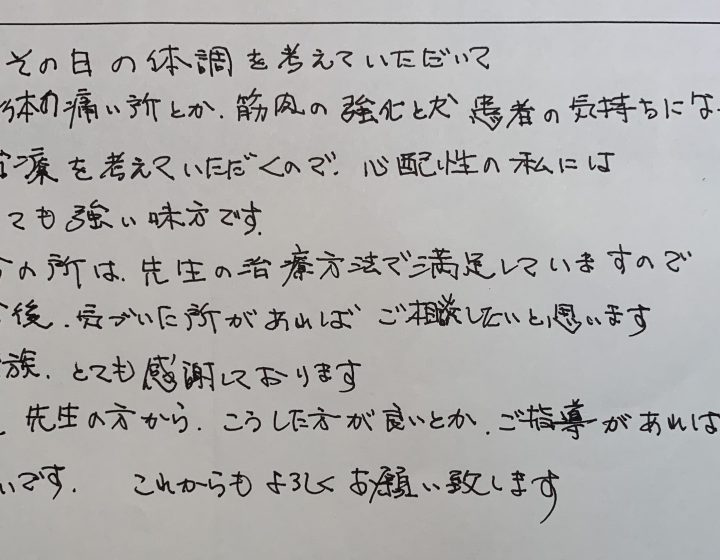 その日の体調を考えていただいて
体の痛い所とか.筋肉の強化とか 患者の気持ちにな
治療を考えていただくので.心配性の私には
ても強い味方です.
今の所は.先生の治療方法で満足していますので
今後.気づいた所があれば ご相談したいと思います
家族.とても感謝しております
先生の方から.こうした方が良いとか.ご指導があれば
いです. これからもよろしくお願い致します